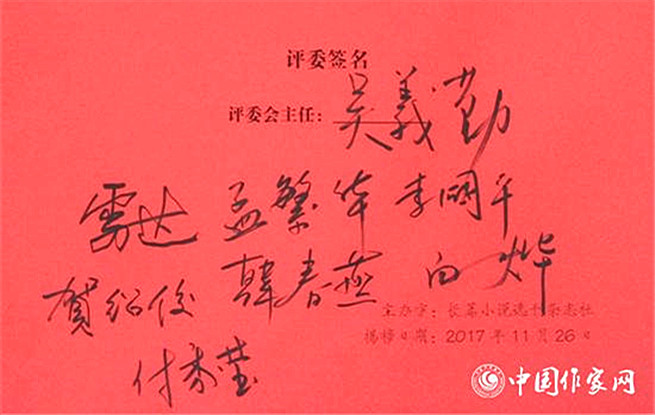 评委签名
评委会主任：吴義勤
雷达 孟繁华 李国平
贺绍俊 韩春燕 白烨
主办方：长篇小说选刊杂志社
揭榜日期：2017年11月26日
付秀莹
中国作家网